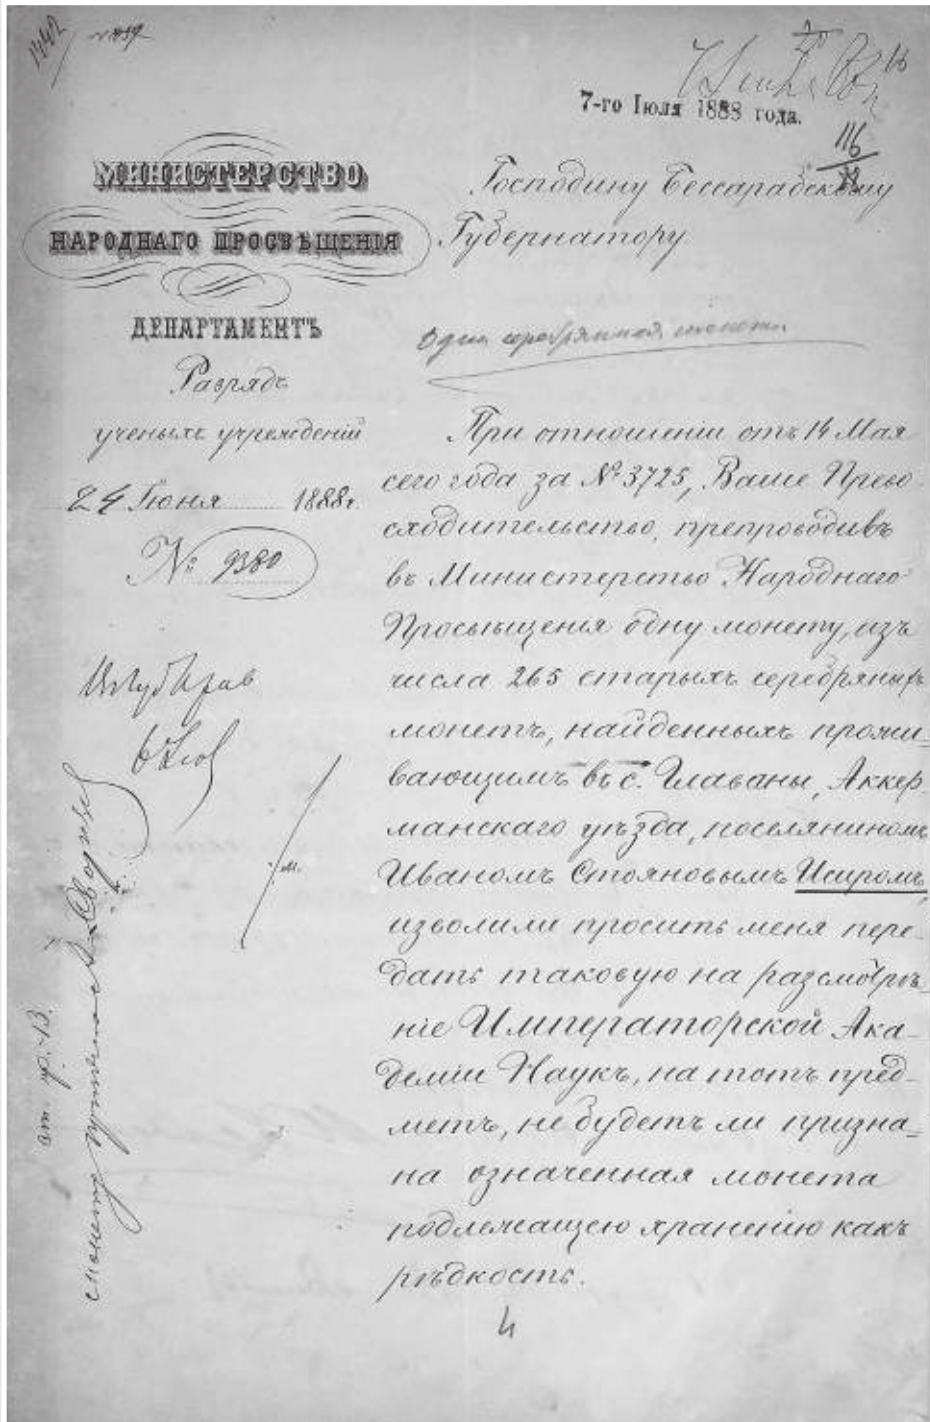 7-го Іюля 1888 года.
116
МИНИСТЕРСТВО
НАРОДНАГО ПРОСВѢЩЕНІЯ
ДЕПАРТАМЕНТЪ
Разрядъ
ученыхъ учрежденій
24 Іюня 1888 г.
№ 9380
Господину Бессарабскому
Губернатору
Одна серебрянная монета
При отношеніи отъ 14 Мая
сего года за № 3725, Ваше Прево
сходительство, препроводивъ
въ Министерство Народнаго
Просвѣщенія одну монету, изъ
числа 265 старыхъ серебряныхъ
монетъ, найденныхъ прожи-
вающимъ въ с. Главаны, Аккер
манскаго уѣзда, поселяниномъ
Иваномъ Стояновымъ Исиромъ,
изволили просить меня пере-
дать таковую на разсмотрѣ-
ніе Императорской Ака-
деміи Наукъ, на тотъ пред-
метъ, не будетъ ли призна-
на означенная монета
подлежащею храненію какъ
рѣдкость.
монету